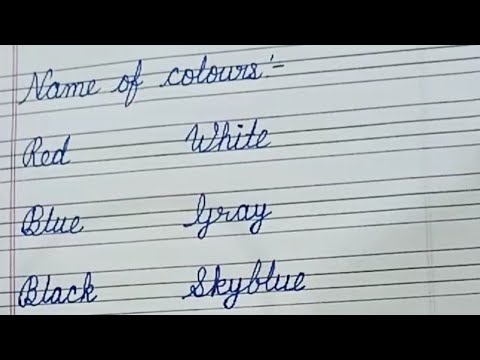 Name of colours:-
Red White
Blue Gray
Black Skyblue